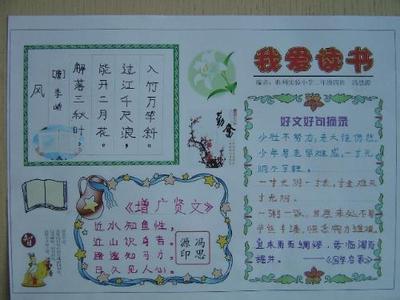 我爱读书
风
【唐】李峤
解落三秋叶，
能开二月花。
过江千尺浪，
入竹万竿斜。
勤奋
好文好句摘录
少壮不努力，老大徒伤悲。
少年易老学难成，一寸光
阴不可轻。
一寸光阴一寸金，寸金难买
寸光阴。
一粥一饭，当思来处不易
半丝半缕，恒念物力维艰。
宜未雨而绸缪，毋临渴而
掘井。
《增广贤文》
近水知鱼性，
近山识鸟音。
路遥知马力，
日久见人心。
冯思源印